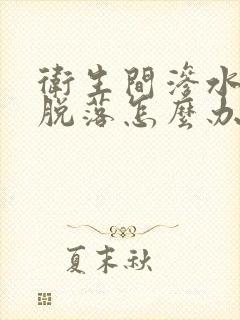 衛生間滲水
脫落怎麼办
夏末秋